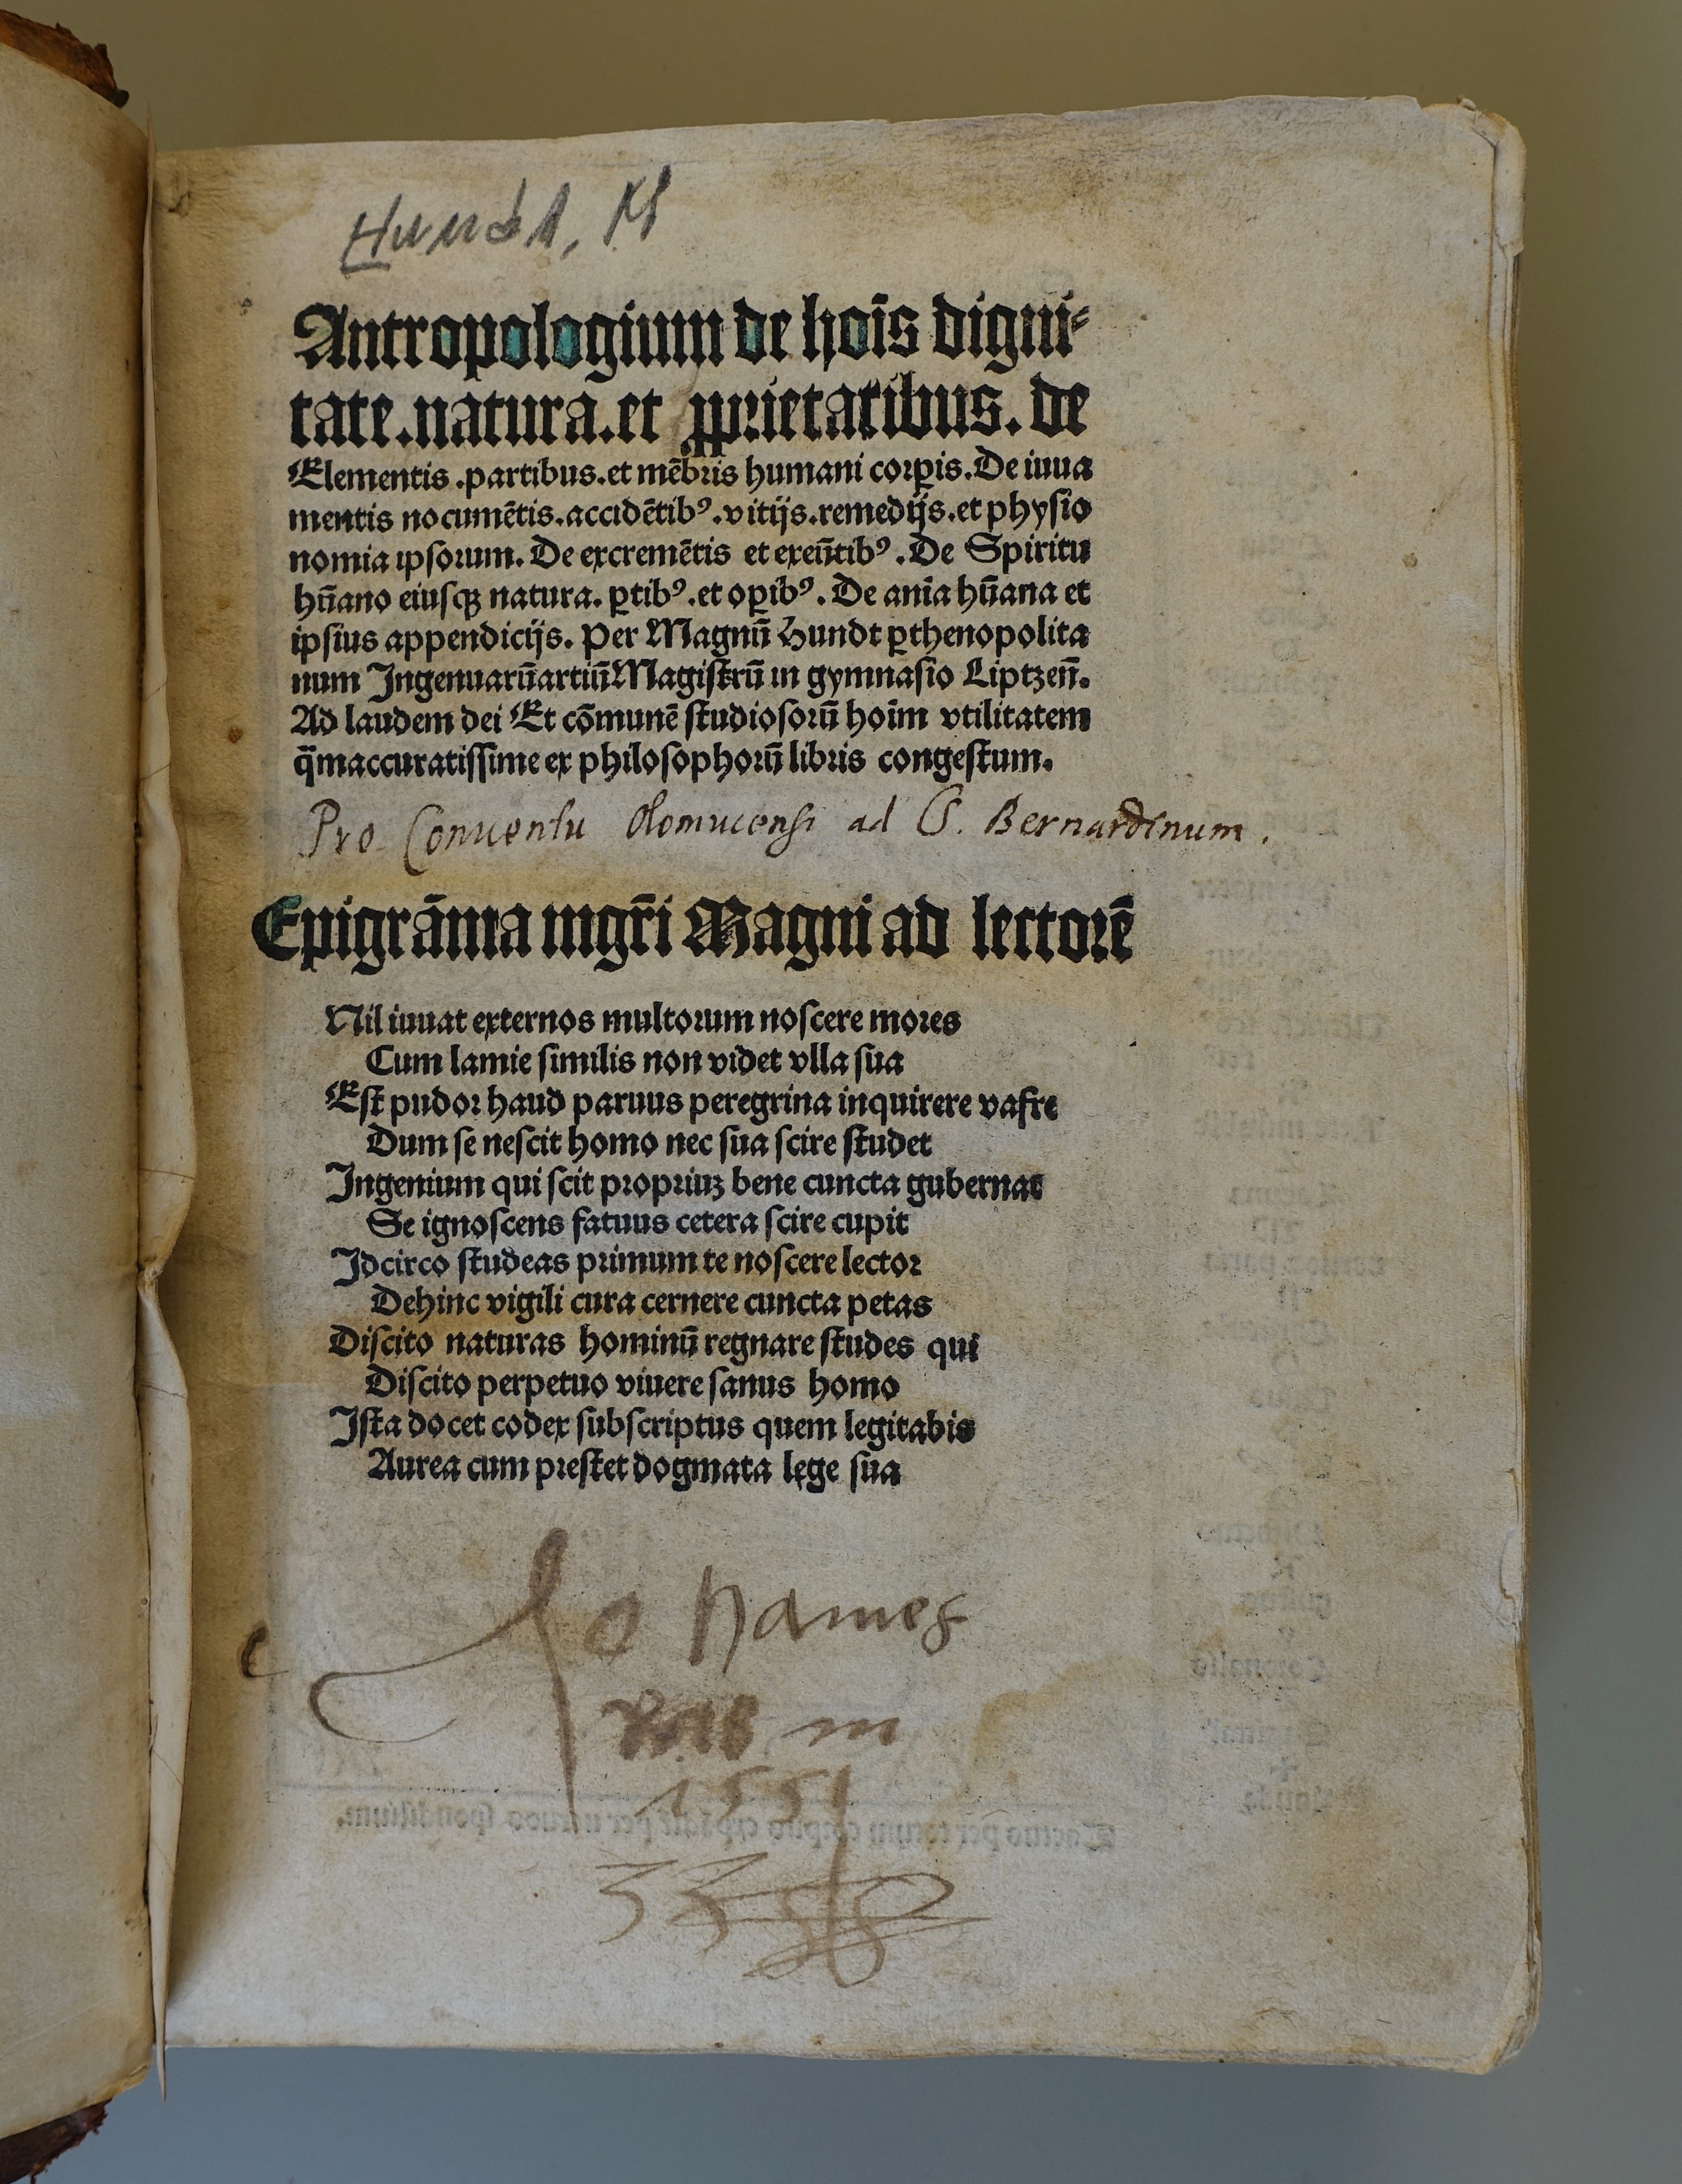 Hundt, M
Antropologium de hoīs digni⸗
tate.natura.et ꝓprietatibus. de
Elementis .partibus.et mēbris humani corꝑis. De iuua
mentis nocumētis.accidētibꝰ.vitijs.remedijs.et physio
nomia ipsorum. De excremētis et exeūtibꝰ. De Spiritu
hūano eiusqꝫ natura. ꝑtibꝰ.et oꝑibꝰ. De anīa hūana et
ipsius appendicijs. Per Magnū Hundt ꝑthenopolita
num Ingenuarū artiū Magistrū in gymnasio Liptzeñ.
Ad laudem dei Et cōmunē studiosorū hoīm vtilitatem
q̄maccuratissime ex philosophorū libris congestum.
Pro Conuentu Olomucensi ad S. Bernardinum.
Epigrāma mgr̄i Magni ad lectorē
Nil iuuat externos multorum noscere mores
Cum lamie similis non videt vlla sua
Est pudor haud paruus peregrina inquirere vafre
Dum se nescit homo nec sua scire studet
Ingenium qui scit propriuꝫ bene cuncta gubernat
Se ignoscens fatuus cetera scire cupit
Idcirco studeas primum te noscere lector
Dehinc vigili cura cernere cuncta petas
Discito naturas hominū regnare studes qui
Discito perpetuo viuere sanus homo
Ista docet codex subscriptus quem legitabis
Aurea cum prestet dogmata lege sua
Johannes
1551